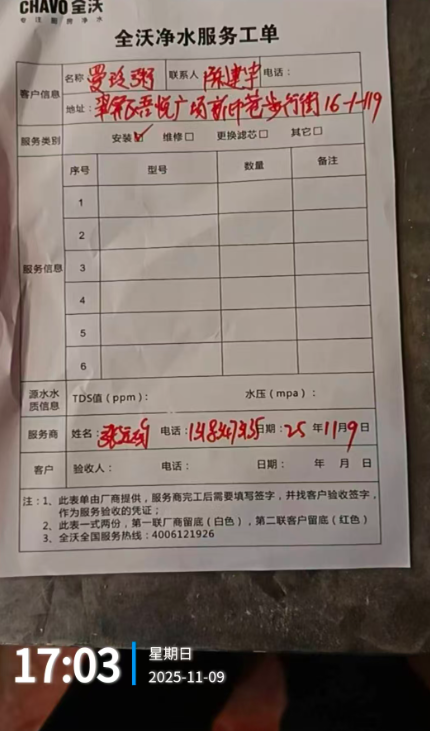 CHAVO全沃
专注厨房净水
全沃净水服务工单
客户信息
名称 曼玲粥 联系人 陈建宇 电话：
地址： 吾悦广场 步行街16-1-119
服务类别 安装☑ 维修☐ 更换滤芯☐ 其它☐
服务信息
序号 型号 数量 备注
1
2
3
4
5
6
源水水质信息 TDS值（ppm）： 水压（mpa）：
服务商 姓名： 电话： 日期：25 年11月9日
客户 验收人： 电话： 日期： 年 月 日
注：1、此表单由厂商提供，服务商完工后需要填写签字，并找客户验收签字，
作为服务验收的凭证；
2、此表一式两份，第一联厂商留底（白色），第二联客户留底（红色）
3、全沃全国服务热线：4006121926
17:03
星期日
2025-11-09